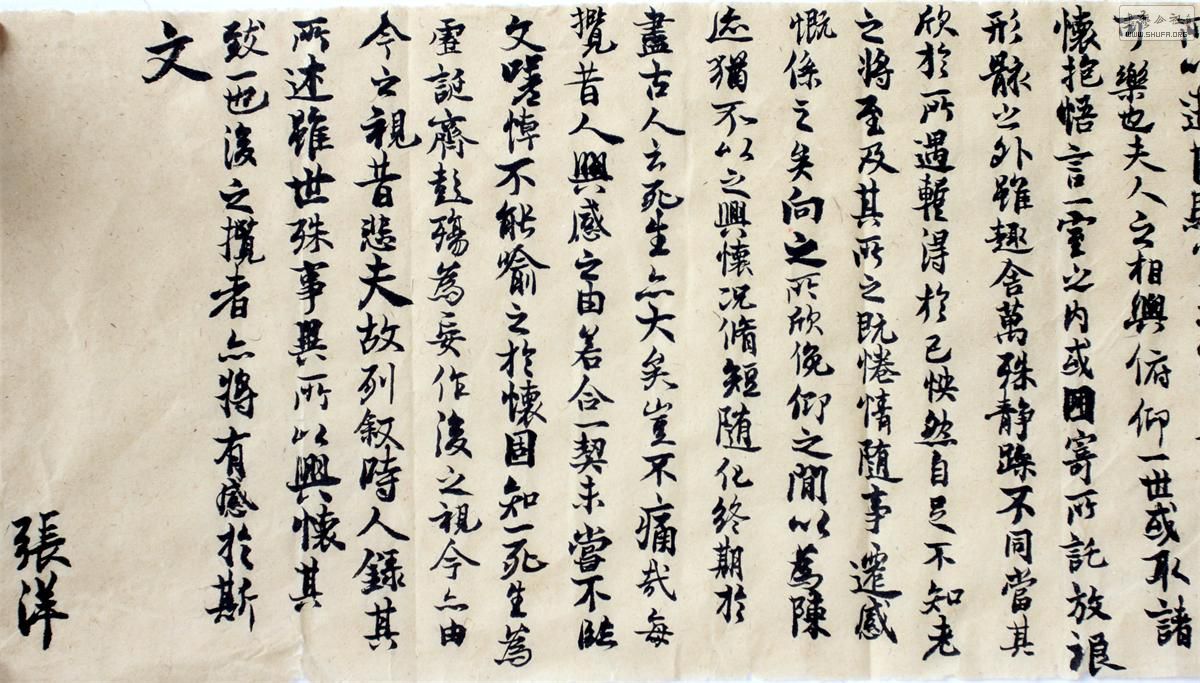 樂也夫人之相與俯仰一世或取諸
懷抱悟言一室之內或因寄所託放浪
形骸之外雖趣舍萬殊靜躁不同當其
欣於所遇暫得於己怏然自足不知老
之將至及其所之既惓情隨事遷感
慨係之矣向之所欣俛仰之閒以為陳
迹猶不以之興懷況脩短隨化終期於
盡古人云死生亦大矣豈不痛哉每
攬昔人興感之由若合一契未嘗不臨
文嗟悼不能喻之於懷固知一死生為
虛誕齊彭殤為妄作後之視今亦由
今之視昔悲夫故列敘時人錄其
所述雖世殊事異所以興懷其
致一也後之攬者亦將有感於斯
文
張洋
WWW.SHUFA.ORG